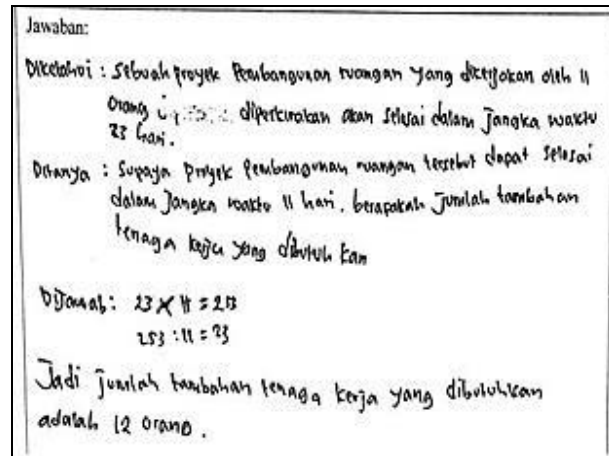 Jawaban:
Diketahui : Sebuah proyek Pembangunan ruangan yang dikerjakan oleh 11
orang diperkirakan akan selesai dalam Jangka waktu
23 hari.
Ditanya : Supaya proyek Pembangunan ruangan tersebut dapat selesai
dalam Jangka waktu 11 hari. berapakah Jumlah tambahan
tenaga kerja yang dibutuh kan
DiJawab: 23 X 11 = 253
253 : 11 = 23
Jadi jumlah tambahan tenaga kerja yang dibutuhkan
adalah 12 orang.